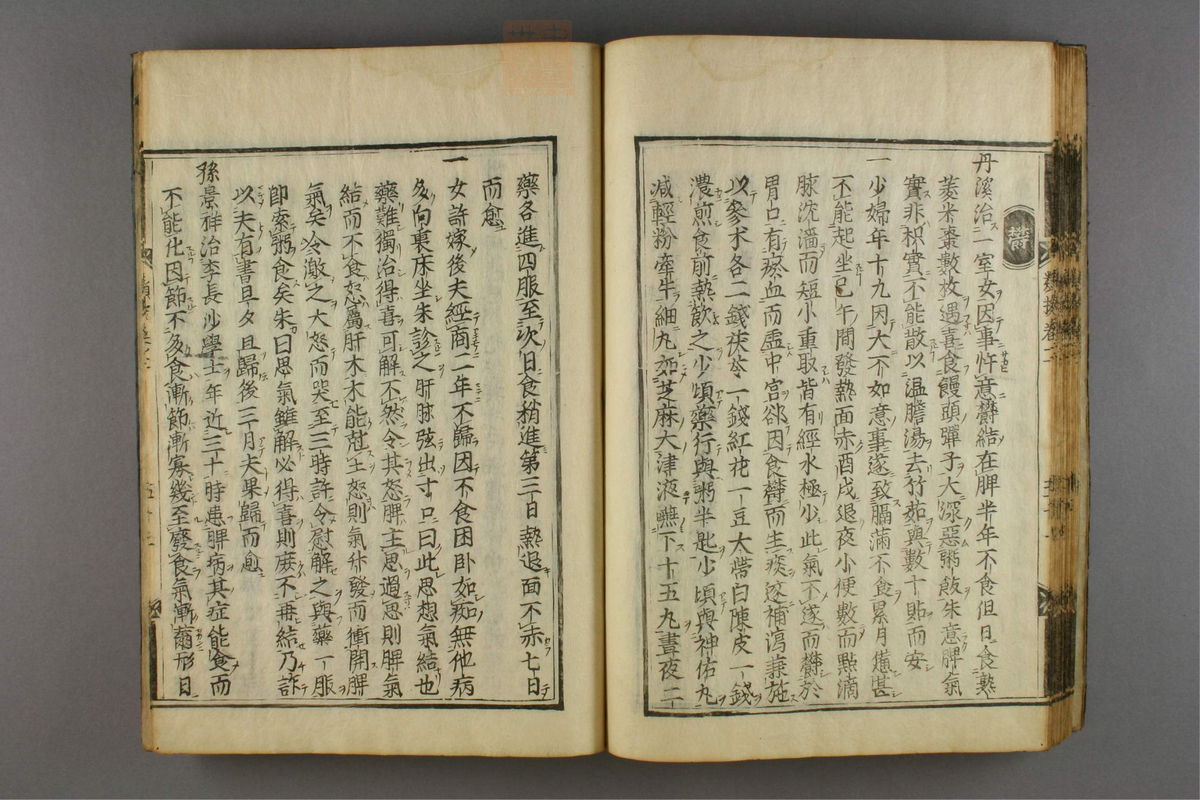 鬱
丹溪治一室女因事忤意鬱結在脾半年不食但日食熟
菱米棗數枚遇喜食饅頭彈子大深惡粥飯朱意脾氣
實非枳實不能散以温膽湯去竹茹與數十貼而安
一少婦年十九因大不如意事遂致膈滿不食累月憊甚
不能起坐巳午間發熱面赤酉戌退夜小便數而點滴
脉沈濇而短小重取皆有經水極少此氣不遂而鬱於
胃口有瘀血而虚中宮却因食鬱而生痰遂補瀉兼施
以參朮各二錢茯苓一錢紅花一豆大帶白陳皮一錢
濃煎食前熱飲之少頃藥行與粥半匙少頃與神佑丸
減輕粉牽牛細丸如芝麻大津液嚥下十五丸晝夜二
藥各進四服至次日食稍進第三日熱退面不赤七日
而愈
一女許嫁後夫經商二年不歸因不食困卧如痴無他病
多向裏床坐朱診之肝脉弦出寸口曰此思想氣結也
藥難獨治得喜可解不然令其怒脾主思過思則脾氣
結而不食怒屬肝木木能尅土怒則氣升發而衝開脾
氣矣令激之大怒而哭至三時許令慰解之與藥一服
即索粥食矣朱曰思氣雖解必得喜則庶不再結乃詐
以夫有書旦夕且歸後三月夫果歸而愈
孫景祥治李長沙學士年近三十時患脾病其症能食而
不能化因節不多食漸節漸寡幾至廢食氣漸薾形日